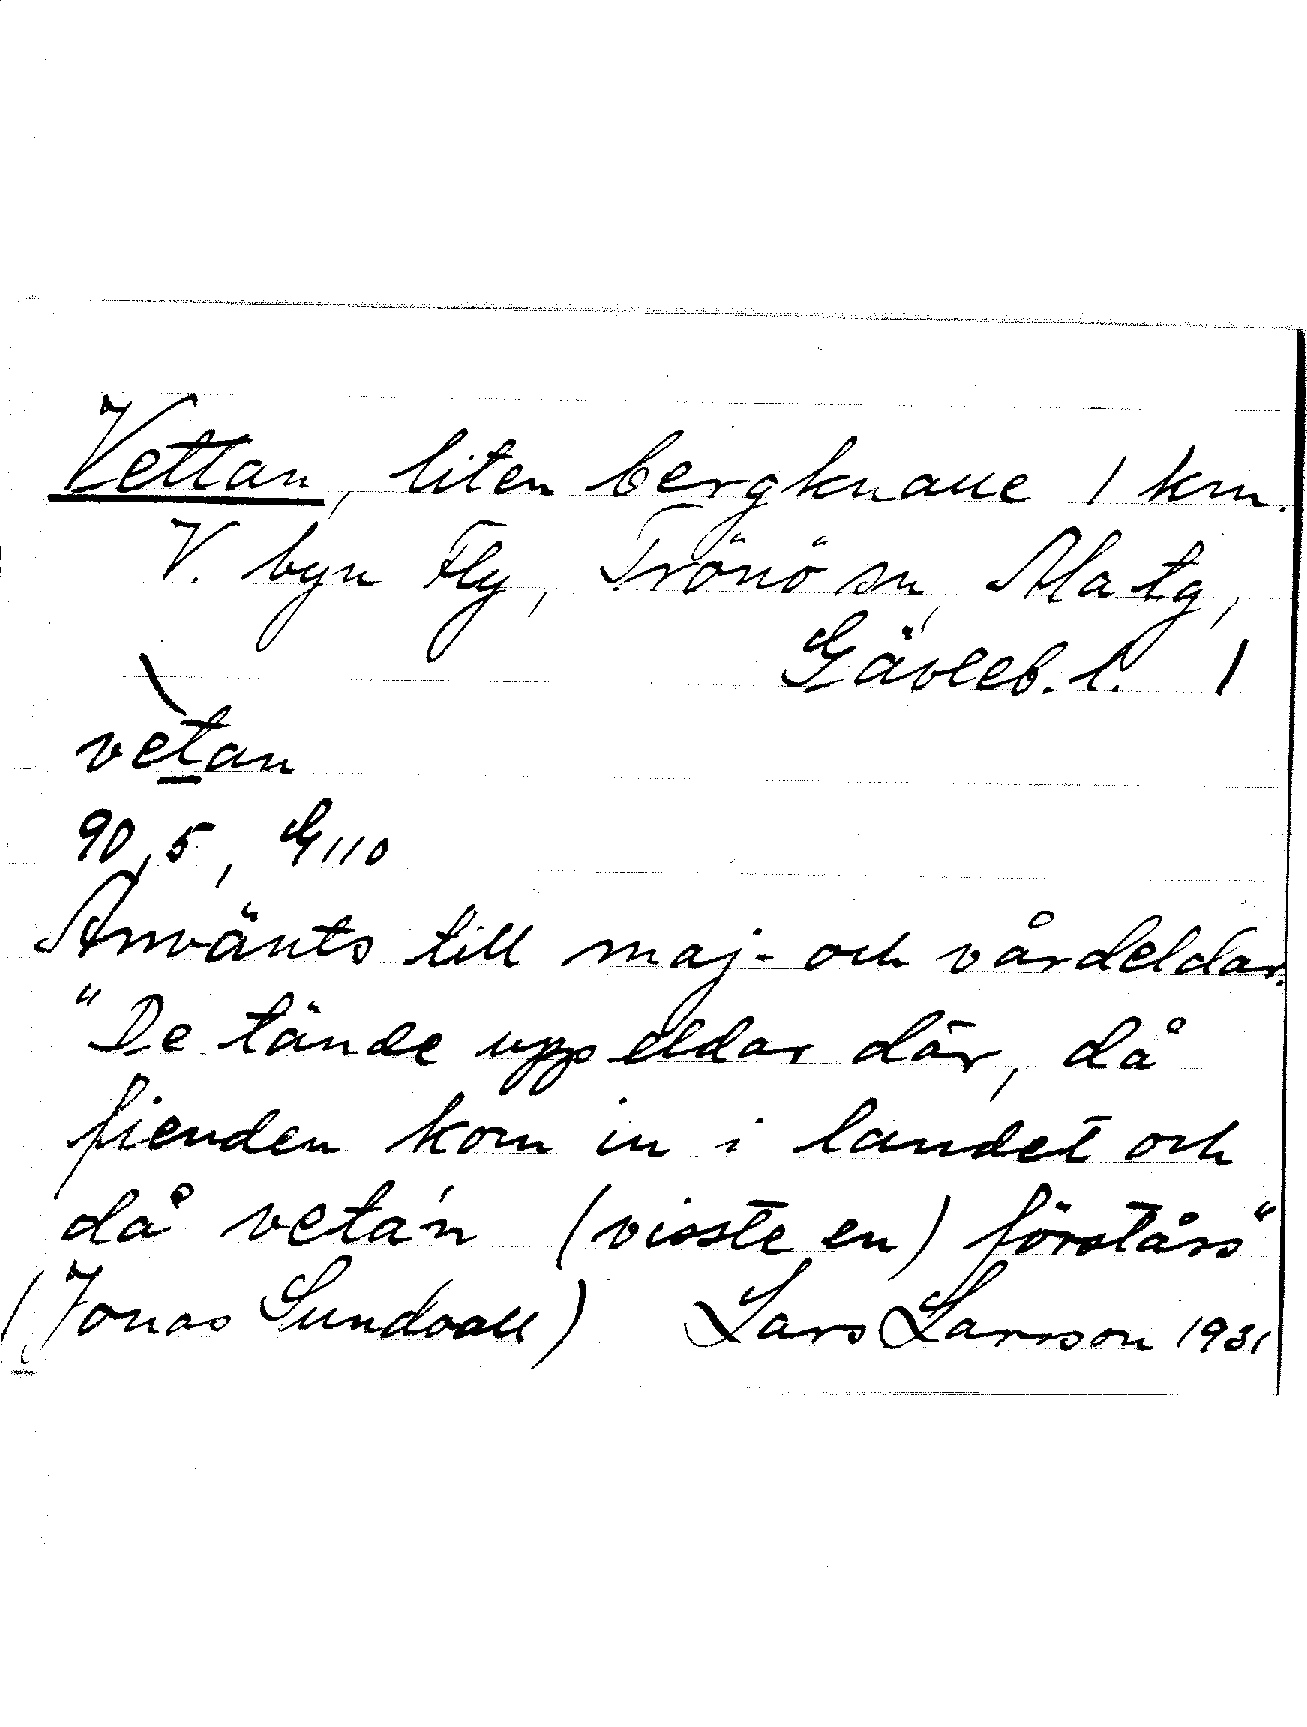 Vettan, liten bergknalle 1 km.
V. byn Fly, Trönö sn, Ala tg,
Gävleb. l. 1
vetan
90,5, G110
Använts till maj- och vårdeldar.
"De tände upp eldar där, då
fienden kom in i landet och
då vetá'n (visste en) förstårs"
(Jonas Sundvall) Lars Larsson 1931